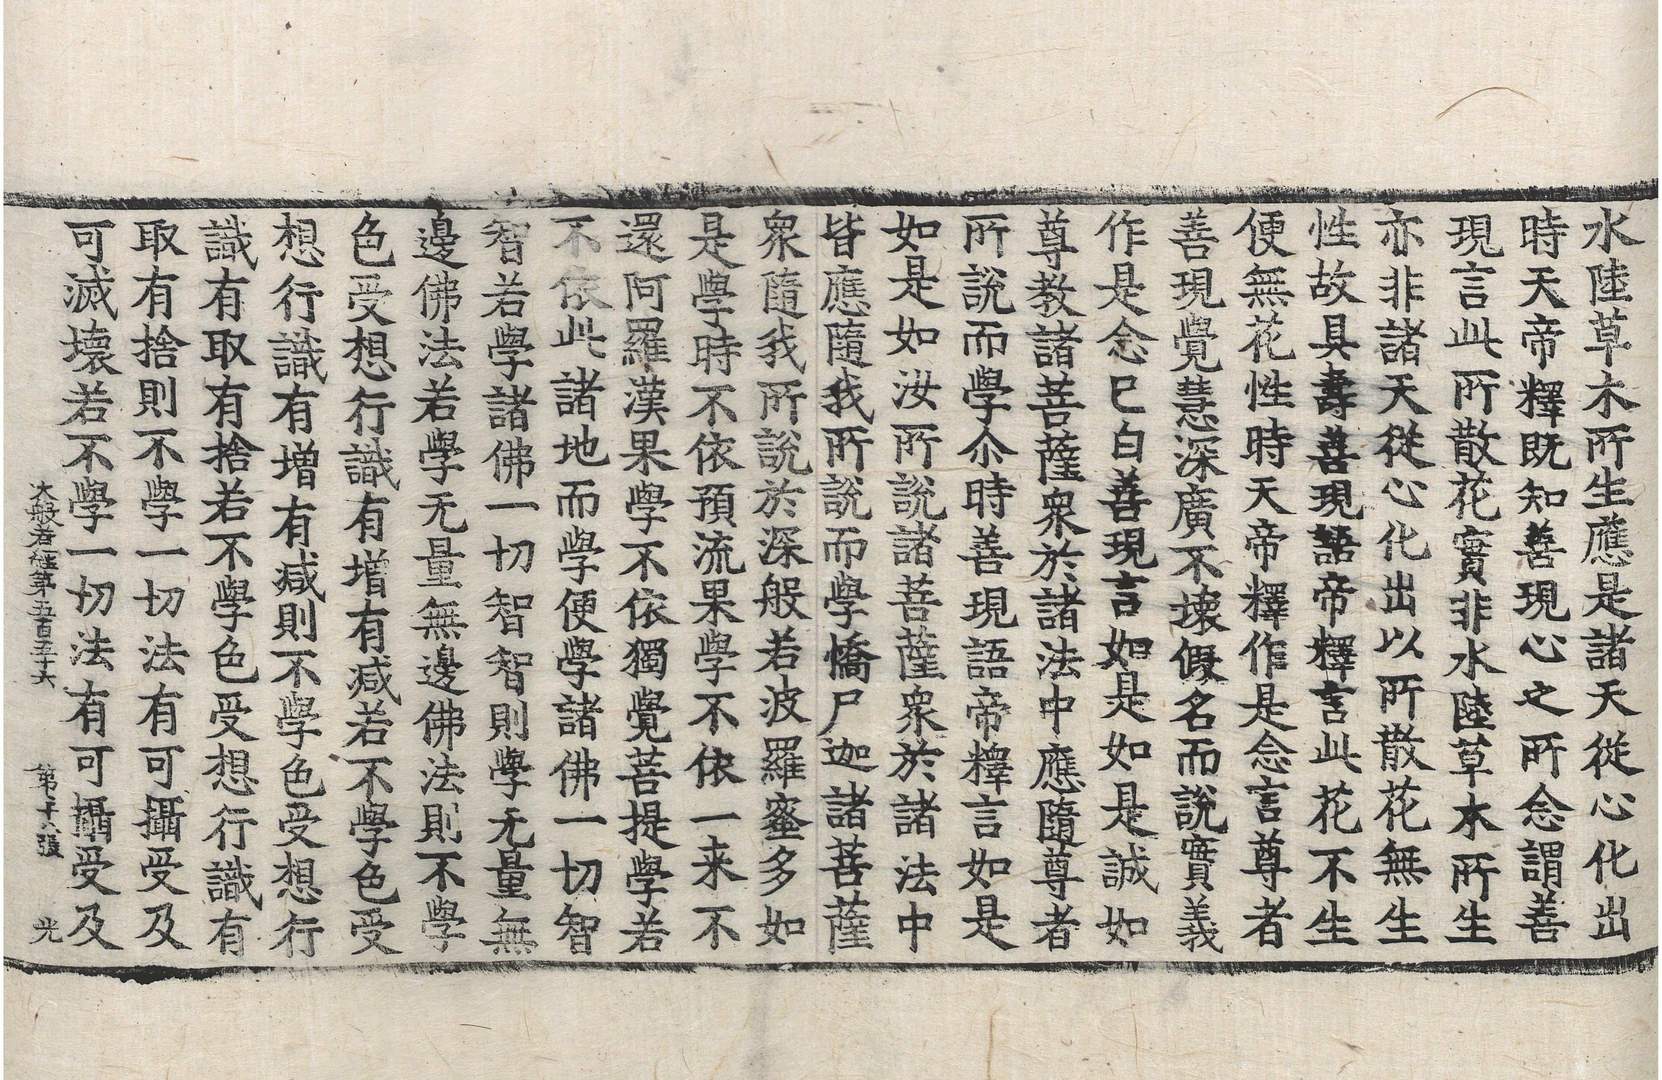 水陸草木所生應是諸天從心化出
時天帝釋既知善現心之所念謂善
現言此所散花實非水陸草木所生
亦非諸天從心化出以所散花無生
性故具壽善現語帝釋言此花不生
便無花性時天帝釋作是念言尊者
善現覺慧深廣不壞假名而說實義
作是念已白善現言如是如是誠如
尊教諸菩薩衆於諸法中應隨尊者
所說而學尒時善現語帝釋言如是
如是如汝所說諸菩薩衆於諸法中
皆應隨我所說而學憍尸迦諸菩薩
衆隨我所說於深般若波羅蜜多如
是學時不依預流果學不依一来不
還阿羅漢果學不依獨覺菩提學若
不依此諸地而學便學諸佛一切智
智若學諸佛一切智智則學无量無
邊佛法若學无量無邊佛法則不學
色受想行識有增有減若不學色受
想行識有增有減則不學色受想行
識有取有捨若不學色受想行識有
取有捨則不學一切法有可攝受及
可滅壞若不學一切法有可攝受及
大般若經第五百五十六 第十六張 光